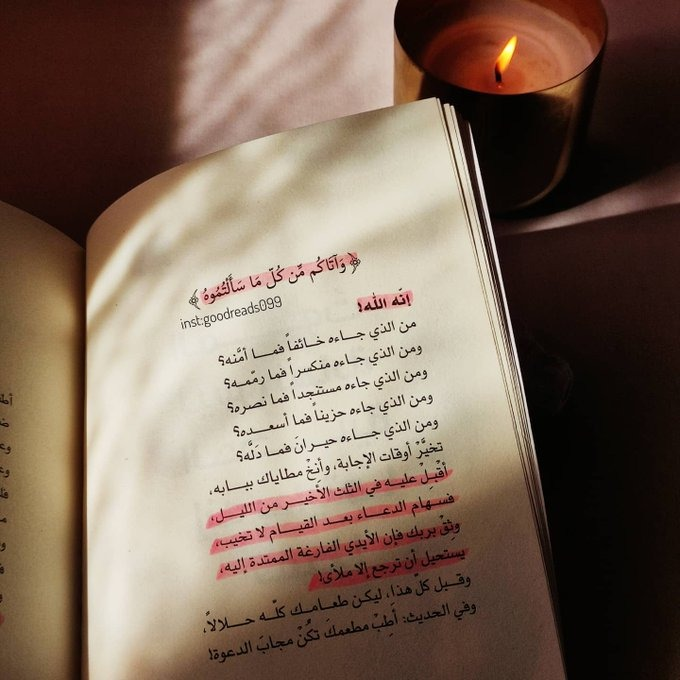 ﴿ وَآتَاكُم مِّن كُلِّ مَا سَأَلْتُمُوهُ ﴾
inst:goodreads099
إنّه الله!
من الذي جاءه خائفاً فما أمَّنه؟
ومن الذي جاءه منكسراً فما رمّمه؟
ومن الذي جاءه مستنجداً فما نصره؟
ومن الذي جاءه حزيناً فما أسعده؟
ومن الذي جاءه حيرانَ فما دَلَّه؟
تخيَّرْ أوقات الإجابة، وأَنِخْ مطاياك ببابه،
أقْبِلْ عليه في الثلث الأخير من الليل،
فسهام الدعاء بعد القيام لا تخيب،
وثِقْ بربك فإن الأيدي الفارغة الممتدة إليه،
يستحيل أن ترجع إلا ملأى!
وقبل كلّ هذا، ليكن طعامك كلّه حلالاً،
وفي الحديث: أَطِبْ مطعمكَ تكُنْ مجابَ الدعوة!